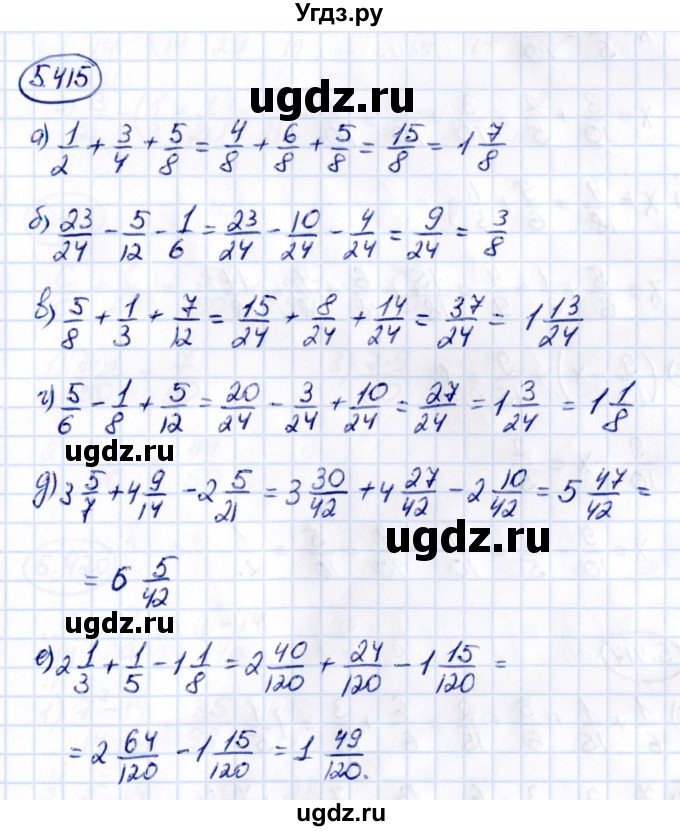 Угдз.ру
5.415
ugdz.ru
а) 1/2 + 3/4 + 5/8 = 4/8 + 6/8 + 5/8 = 15/8 = 1 7/8
б) 23/24 - 5/12 - 1/6 = 23/24 - 10/24 - 4/24 = 9/24 = 3/8
в) 5/8 + 1/3 + 7/12 = 15/24 + 8/24 + 14/24 = 37/24 = 1 13/24
г) 5/6 - 1/8 + 5/12 = 20/24 - 3/24 + 10/24 = 27/24 = 1 3/24 = 1 1/8
ugdz.ru
д) 3 5/7 + 4 9/14 - 2 5/21 = 3 30/42 + 4 27/42 - 2 10/42 = 5 47/42 =
ugdz.ru
= 6 5/42
ugdz.ru
е) 2 1/3 + 1/5 - 1 1/8 = 2 40/120 + 24/120 - 1 15/120 =
= 2 64/120 - 1 15/120 = 1 49/120.
ugdz.ru
ugdz.ru